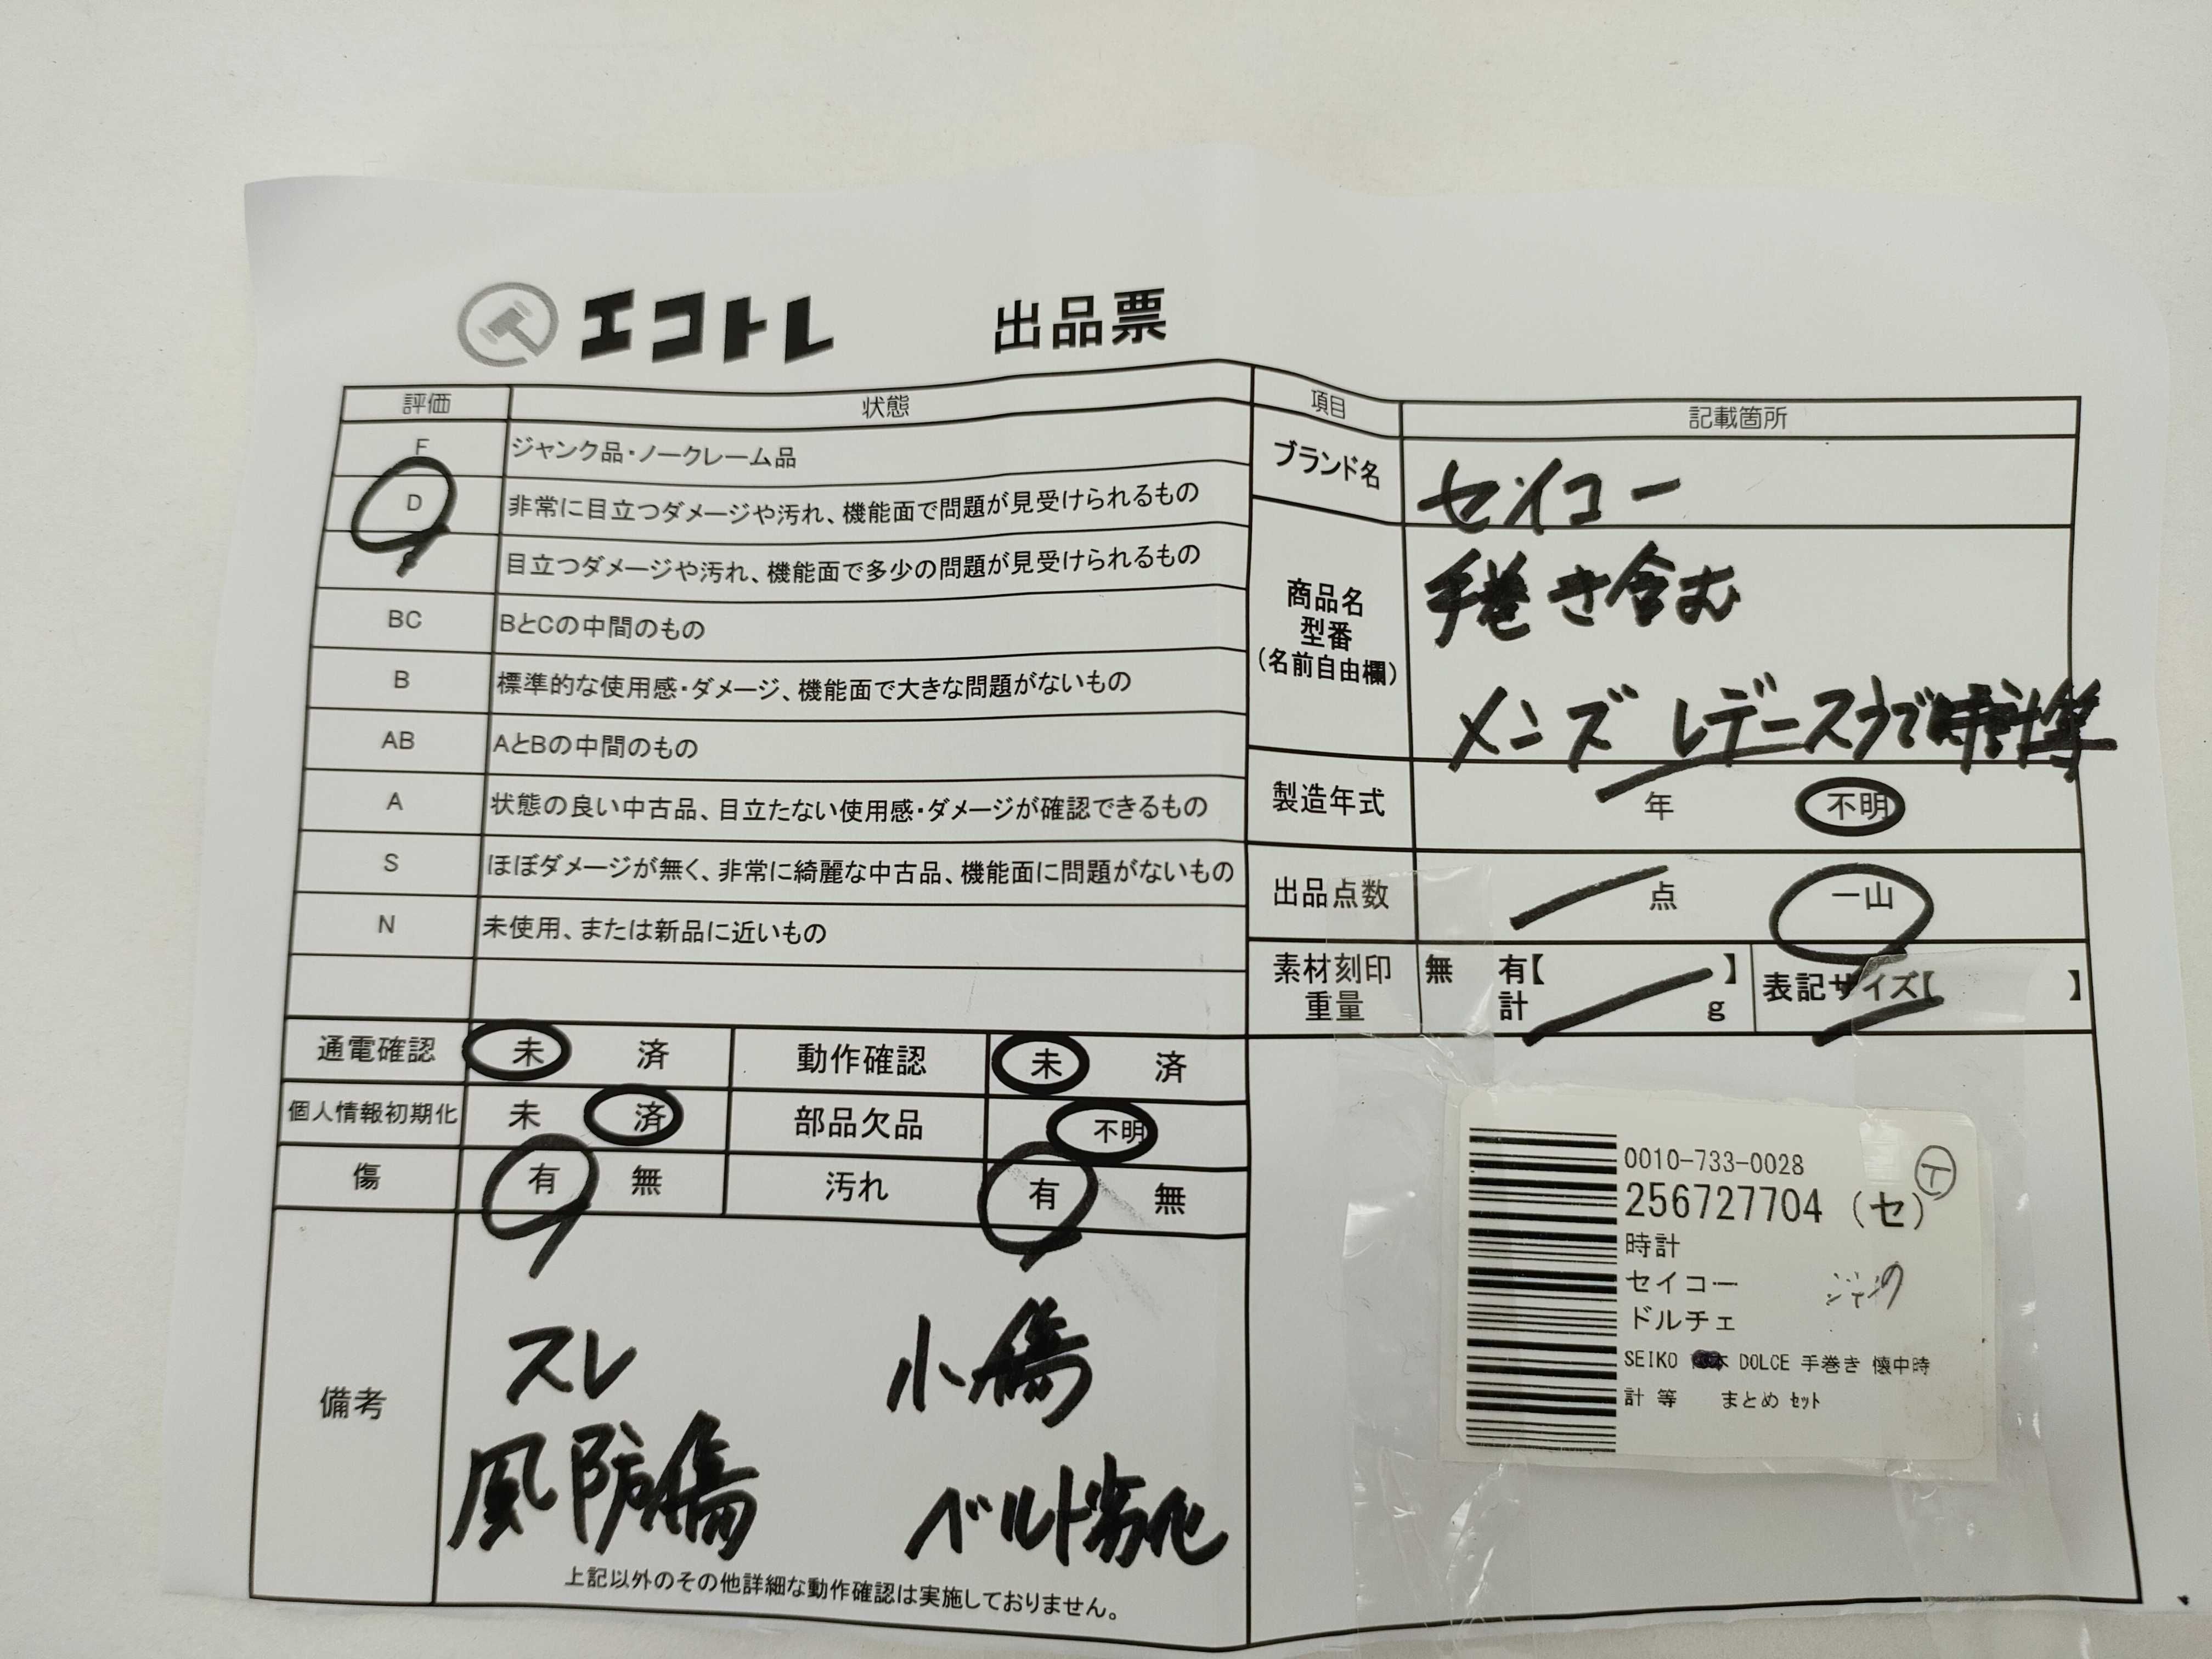 エコトレ 出品票
評価 状態
F ジャンク品・ノークレーム品
D 非常に目立つダメージや汚れ、機能面で問題が見受けられるもの
目立つダメージや汚れ、機能面で多少の問題が見受けられるもの
BC BとCの中間のもの
B 標準的な使用感・ダメージ、機能面で大きな問題がないもの
AB AとBの中間のもの
A 状態の良い中古品、目立たない使用感・ダメージが確認できるもの
S ほぼダメージが無く、非常に綺麗な中古品、機能面に問題がないもの
N 未使用、または新品に近いもの
通電確認 未 済 動作確認 未 済
個人情報初期化 未 済 部品欠品 不明
傷 有 無 汚れ 有 無
備考
スレ 小傷
風防傷 ベルト劣化
上記以外のその他詳細な動作確認は実施しておりません。
項目 記載箇所
ブランド名 セイコー
商品名
型番
(名前自由欄)
手巻き含む
メンズ レデースうで時計等
製造年式 年 不明
出品点数 点 一山
素材刻印 無 有【 】
重量 計 g
表記サイズ【 】
0010-733-0028
256727704 (セ)
時計
セイコー
ドルチェ
SEIKO DOLCE 手巻き 懐中時
計 等 まとめ セット